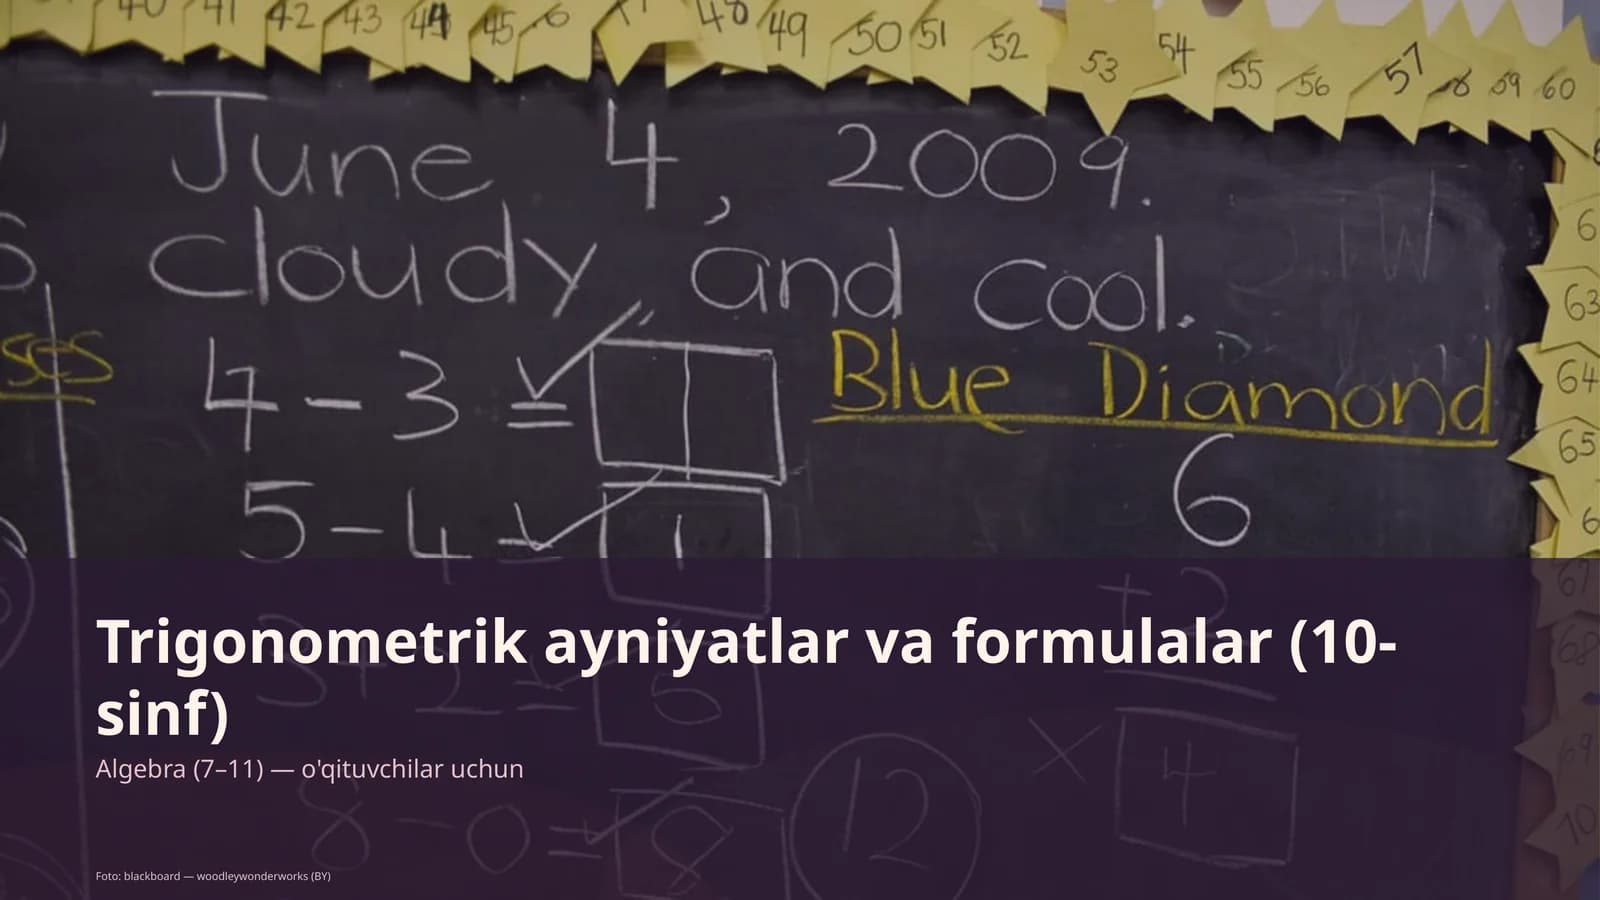 40 41 42 43 44 45 48 49 50 51 52 53 54 55 56 57 58 59 60
June 4, 2009.
Cloudy, and cool.
63
64
65
ses
4 - 3 =
Blue Diamond
5 - 4 = 1
6
+ 2
3 + 2 = 5
4
8 - 0 = 8
12
67
68
69
70
Trigonometrik ayniyatlar va formulalar (10-
sinf)
Algebra (7–11) — o'qituvchilar uchun
Foto: blackboard — woodleywonderworks (BY)